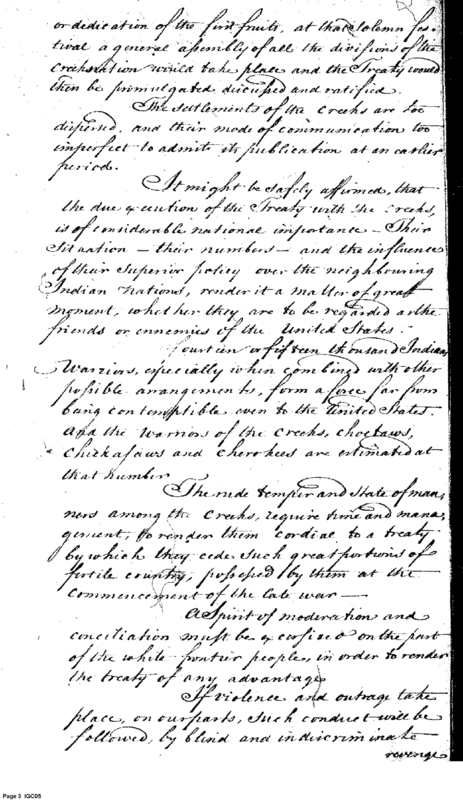 or dedication of the first fruits, at that Solemn fes-
tival a general assembly of all the divisions of the
Creek nation would take place and the Treaty would
then be promulgated discussed and ratified.
The settlements of the Creeks are too
dispersed, and their mode of communication too
imperfect to admit its publication at an earlier
period.
It might be safely affirmed, that
the due execution of the Treaty with the Creeks,
is of considerable national importance — Their
Situation — their numbers — and the influence
of their Superior policy over the neighbouring
Indian Nations, render it a matter of great
moment, whether they are to be regarded as the
friends or ennemies of the United States.
Fourteen or fifteen thousand Indian
Warriors, especially when combined with other
possible arrangements, form a force far from
being contemptible even to the United States.
And the Warriors of the Creeks, Choctaws,
Chickasaws and Cherokees are estimated at
that number
The rude temper and State of man-
ners among the Creeks, require time and mana-
gement, to render them cordial to a treaty
by which they cede such great portions of
fertile country, possessed by them at the
Commencement of the late war —
A Spirit of moderation and
conciliation must be exercised on the part
of the white frontier people, in order to render
the treaty of any advantage
If violence and outrage take
place, on our parts, such conduct will be
followed, by blind and indiscriminate
revenge
Page 3 IGC05